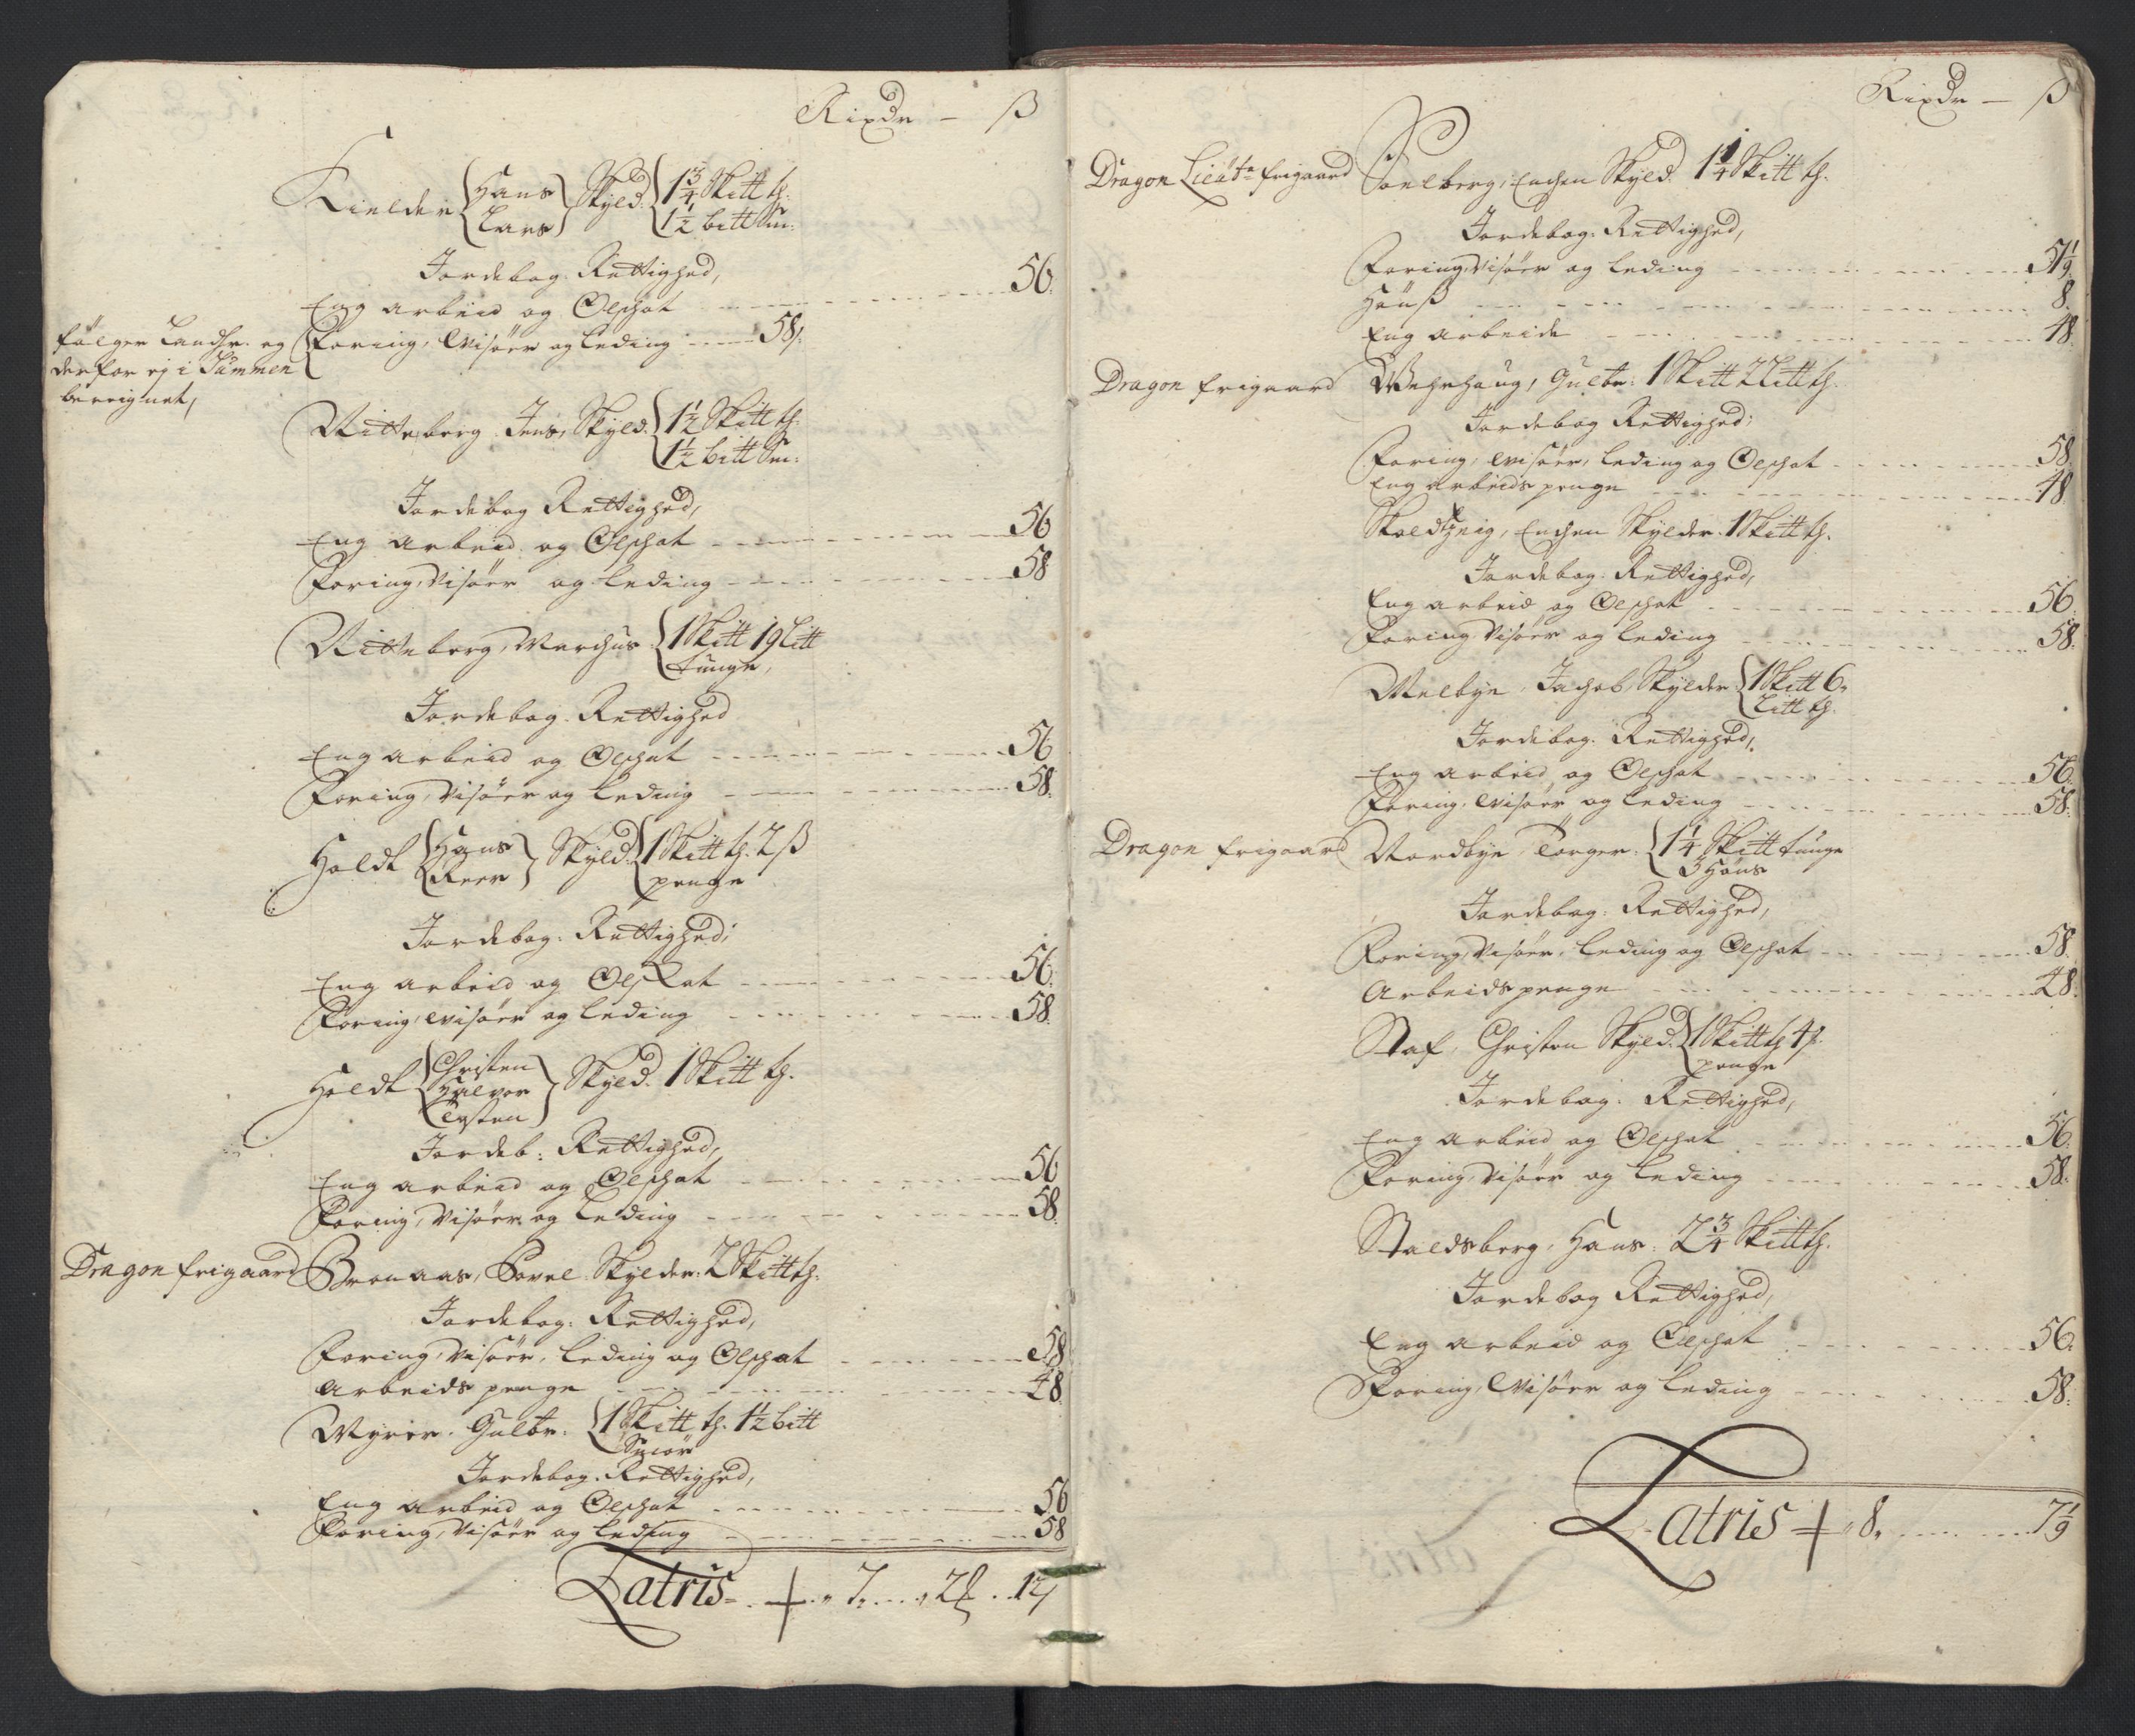 Rixdr — ß
Kielder Hans Lars Skyld 1¾ Skitt th. 1½ bitt Sm:
Jordebog: Rettighed,
Eng arbeid og Olschat 56
følger Landhr. og
derfor ej i Summen
bereignet,
Foring, Wisøer og Leding 58/:
Nitteberg Jens, Skyld. 1½ Skitt th. 1½ bitt Sm:
Jordebog Rettighed,
Eng arbeid og Olschat 56
Foring, Visøer og Leding 58
Nitteberg, Marchus. 1 Skitt 19 Litt
tunge,
Jordebog. Rettighed
Eng arbeid og Olschat 56
Foring, Visøer og Leding 58.
Holdt Hans Peer Skyld. 1 Skitt th. 2 ß
penge
Jordebog: Rettighed;
Eng arbeid og Olskat 56.
Foring, Wisøer og Leding 58.
Holdt Christen Halvor Tosten Skyld. 1 Skitt th.
Jordeb: Rettighed,
Eng arbeid og Olschat 56
Foring, Visøer og Leding 58.
Dragon frigaard Bronaas, Povel Skylder. 2 Skitt th:
Jordebog: Rettighed,
Foring, Visøer, Leding og Olschat 58
Arbeids penge 48
Myrer. Gulbr. 1 Skitt th. 1½ bitt
Smiør
Jordebog. Rettighed,
Eng arbeid og Olschat 56
Foring, Visøer og Leding 58
Latris 7 12
Rixdr — ß
Dragon Lieut: frigaard Enchen Skyld. 1¼ Skitt th.
Jordebog: Rettighed,
Foring, Visøer og Leding 5 1/9.
Hønß 8.
Eng arbeide 48.
Dragon frigaard Wehrhaug, Gulbr: 1 Skitt 2 Litt th.
Jordebog Rettighed;
Foring, Wisøer, Leding og Olschat 58.
Eng arbeids penge 48
Enchen Skylder. 1 Skitt th.
Jordebog. Rettighed,
Eng arbeid og Olschat 56.
Foring, Visøer og Leding 58.
Melbye, Jachob, Skylder 1 Skitt 6
Litt th.
Jordebog. Rettighed,
Eng arbeid og Olschat 56.
Foring, Wisøer og Leding 58.
Dragon frigaard Nordbye, Torger. 1¼ Skitt tunge
3 Høns
Jordebog: Rettighed,
Foring, Visøer, Leding og Olschat 58.
Arbeids penge 48.
Staf, Christen Skyld. 1 Skitt th 4 ß.
penge
Jordebog. Rettighed,
Eng arbeid og Olschat 56.
Foring, Visøer og Leding 58.
Staldsberg, Hans: 2¾ Skitt th.
Jordebog Rettighed,
Eng arbeid og Olschat 56.
Foring, Wisøer og Leding 58.
Latris 8. 7 1/9